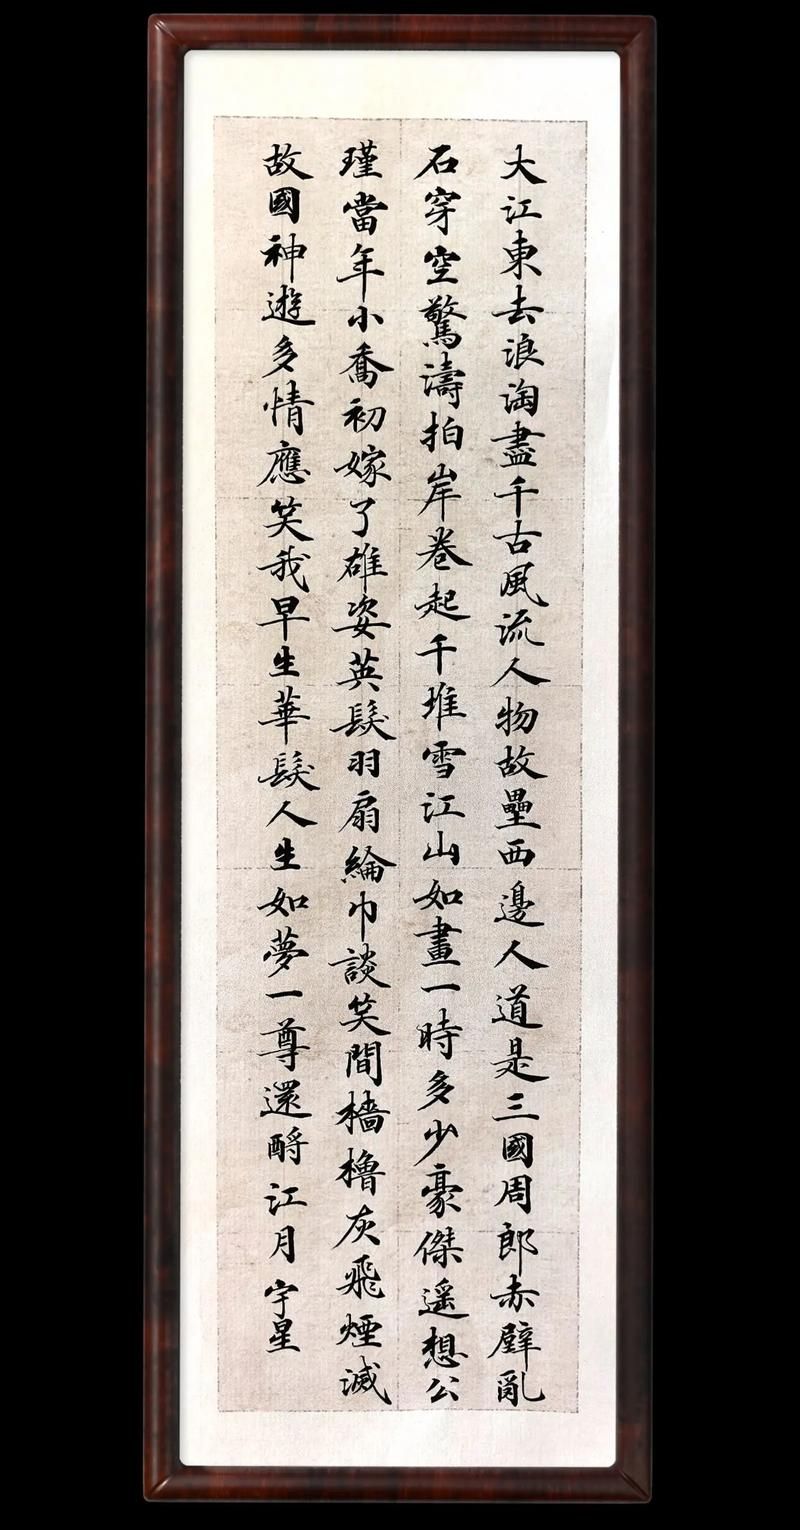 大江東去浪淘盡千古風流人物故壘西邊人道是三國周郎赤壁亂
石穿空驚濤拍岸卷起千堆雪江山如畫一時多少豪傑遥想公
瑾當年小喬初嫁了雄姿英髮羽扇綸巾談笑間檣櫓灰飛煙滅
故國神遊多情應笑我早生華髮人生如夢一尊還酹江月宇星